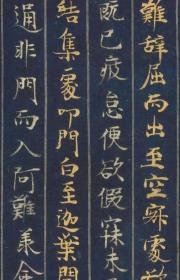 難辭屈而出至空寂處
既已疲怠便欲假寐未
結集處叩門白至迦葉
通非門而入阿難承